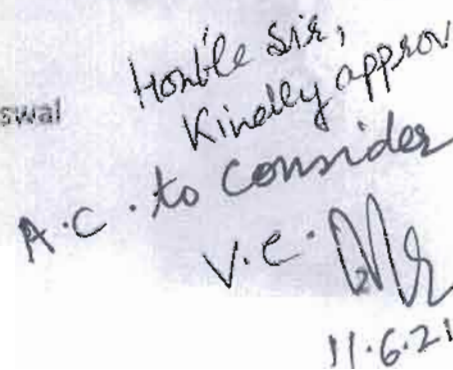 Hon'ble Sir,
Kindly approv
swal
A.C. to Consider
V.C.
11.6.21